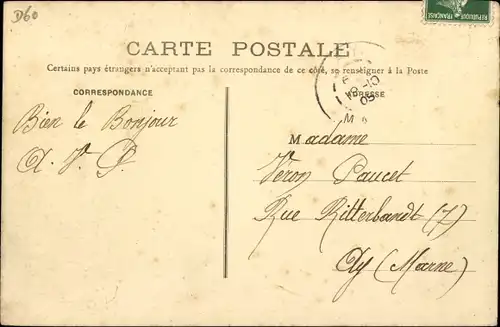 D60
REPUBLIQUE FRANÇAISE
CARTE POSTALE
Certains pays étrangers n'acceptant pas la correspondance de ce côté, se renseigner à la Poste
CORRESPONDANCE
ADRESSE
18-10
05
Bien le Bonjour
A. V. P.
Madame
Véron Paucet
Rue Ritterbandt (7)
Ay (Marne)